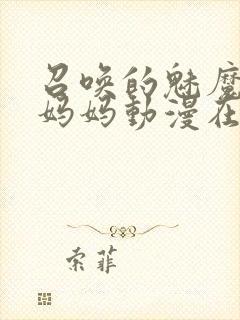 召唤的魅魔
妈妈動漫在
索菲